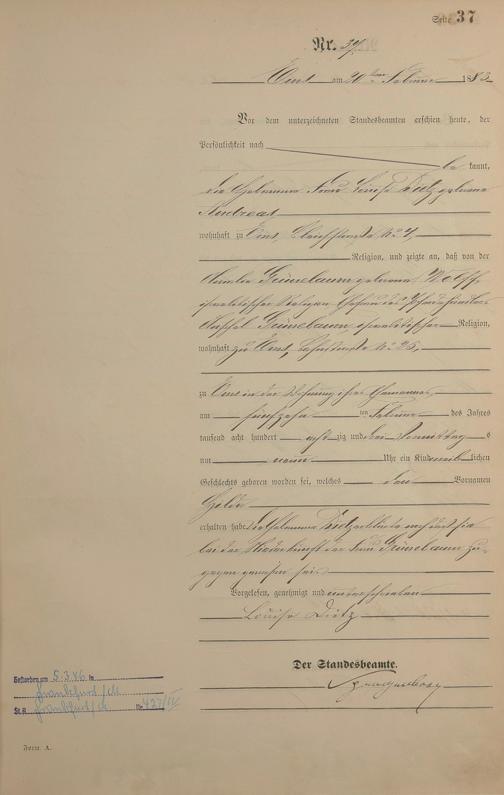 Seite 37
Nr. 37
Ems am 20 ten Februar 1883
Vor dem unterzeichneten Standesbeamten erschien heute, der
Persönlichkeit nach
be kannt,
die Hebamme Frau Louise Dietz geborene
Andreas
wohnhaft zu Ems, No 4,
Religion, und zeigte an, daß von der
Grünebaum geborenen Wolff,
israelitischer Religion, Ehefrau des
Grünebaum, israelitischer Religion,
wohnhaft zu Ems, No 25,
zu Ems in der Wohnung ihres Ehemannes
am fünfzehn ten Februar des Jahres
tausend acht hundert acht zig und drei Vormittag s
um neun Uhr ein Kind weib lichen
Geschlechts geboren worden sei, welches den Vornamen
erhalten habe. Die Hebamme Dietz erklärte, daß sie
bei der Niederkunft der Frau Grünebaum zu-
gegen gewesen sei.
Vorgelesen, genehmigt und unterschrieben
Louise Dietz
Der Standesbeamte.
Gestorben am 5.3.46 in
Frankfurt/M
St.A. Frankfurt/M Nr. 427/IV
Form. A.